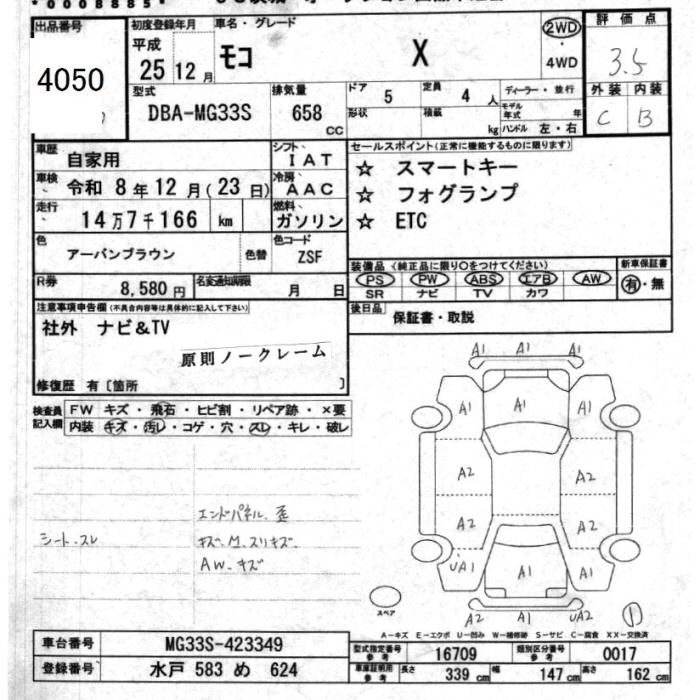 *0008885*
出品番号
4050
初度登録年月
平成
25 12 月
車名・グレード
モコ X
2WD
・
4WD
評価点
3.5
外装 内装
C B
型式
DBA-MG33S
排気量
658
CC
ドア
5
定員
4 人
ディーラー・並行
形状
積載
kg
モデル年式 年
ハンドル 左・右
車歴
自家用
シフト
IAT
車検
令和 8 年 12 月 (23 日)
冷房
AAC
走行
14 万 7 千 166 km
燃料
ガソリン
色
アーバンブラウン
色替
色コード
ZSF
R券
8,580 円
名変通知期限
月 日
セールスポイント(正常に機能するものに限ります)
☆ スマートキー
☆ フォグランプ
☆ ETC
装備品 (純正品に限り○をつけてください)
PS PW ABS エアB AW
SR ナビ TV カワ
新車保証書
有・無
後日品
保証書・取説
注意事項申告欄(不具合内容等は具体的に記入して下さい)
社外 ナビ&TV
原則ノークレーム
修復歴 有〔箇所 〕
検査員記入欄
FW キズ・飛石・ヒビ割・リペア跡・×要
内装 キズ・汚レ・コゲ・穴・スレ・キレ・破レ
エンドパネル、歪
シート、スレ
キズ、M、スリキズ
AW、キズ
A1 A1 A1
A1 A1 A1
A2 A2
A2 A2
UA1 A1 A1
A2 A1 UA2
スペア
1
A−キズ E−エクボ U−凹み W−補修跡 S−サビ C−腐食 XX−交換済
車台番号
MG33S-423349
登録番号
水戸 583 め 624
型式指定番号 参考
16709
類別区分番号 参考
0017
車庫証明用 参考
長さ 339 cm
幅 147 cm
高さ 162 cm